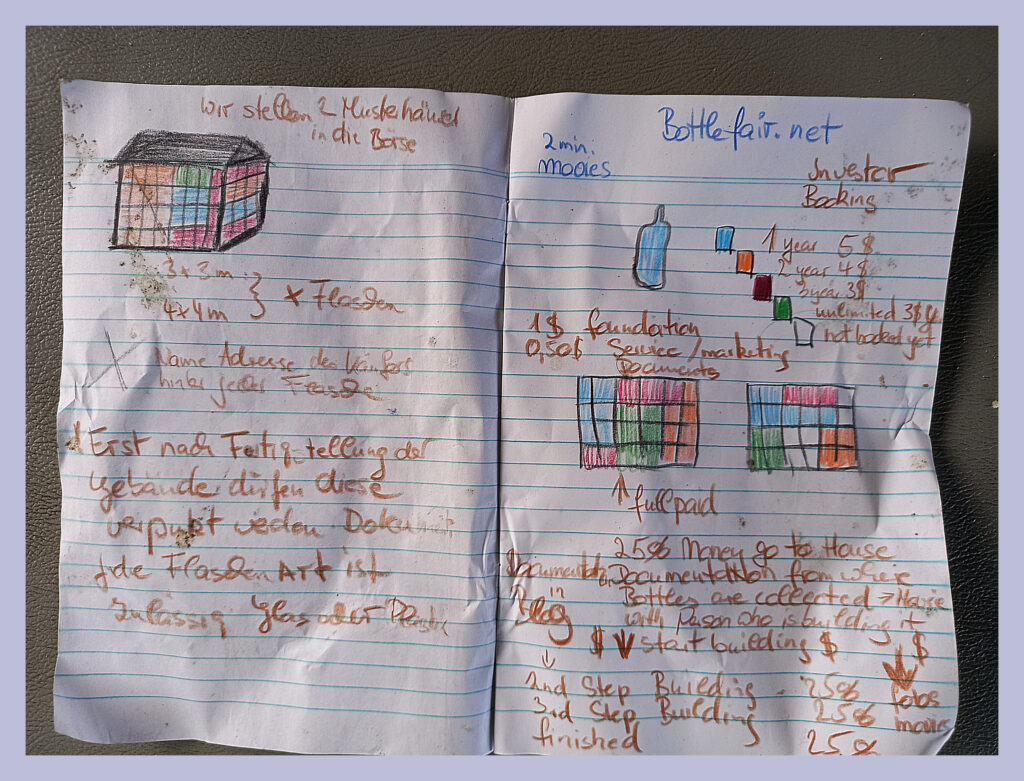 wir stellen 2 Musterhäuser
in die Börse
3x3m
4x4m } x Flaschen
Name Adresse des Käufers
hinter jeder Flasche
Erst nach Fertigstellung der
Gebäude dürfen diese
verputzt werden
jede Flaschen Art ist
zulässig Glas oder Plastik
Bottle-fair.net
2 min.
movies
Investor
Booking
1 year 5$
2 year 4$
3 year 3$
unlimited 3$
not booked yet
1$ foundation
0,50$ Service/marketing
Documents
↑ full paid
25% Money go to House
Documentation from where
Bottles are collected → Movie
with person who is building it
in
Blog
$ ↓ start building $ $
↓
2nd Step Building 25%
3rd Step Building 25%
finished 25%
fotos
movies